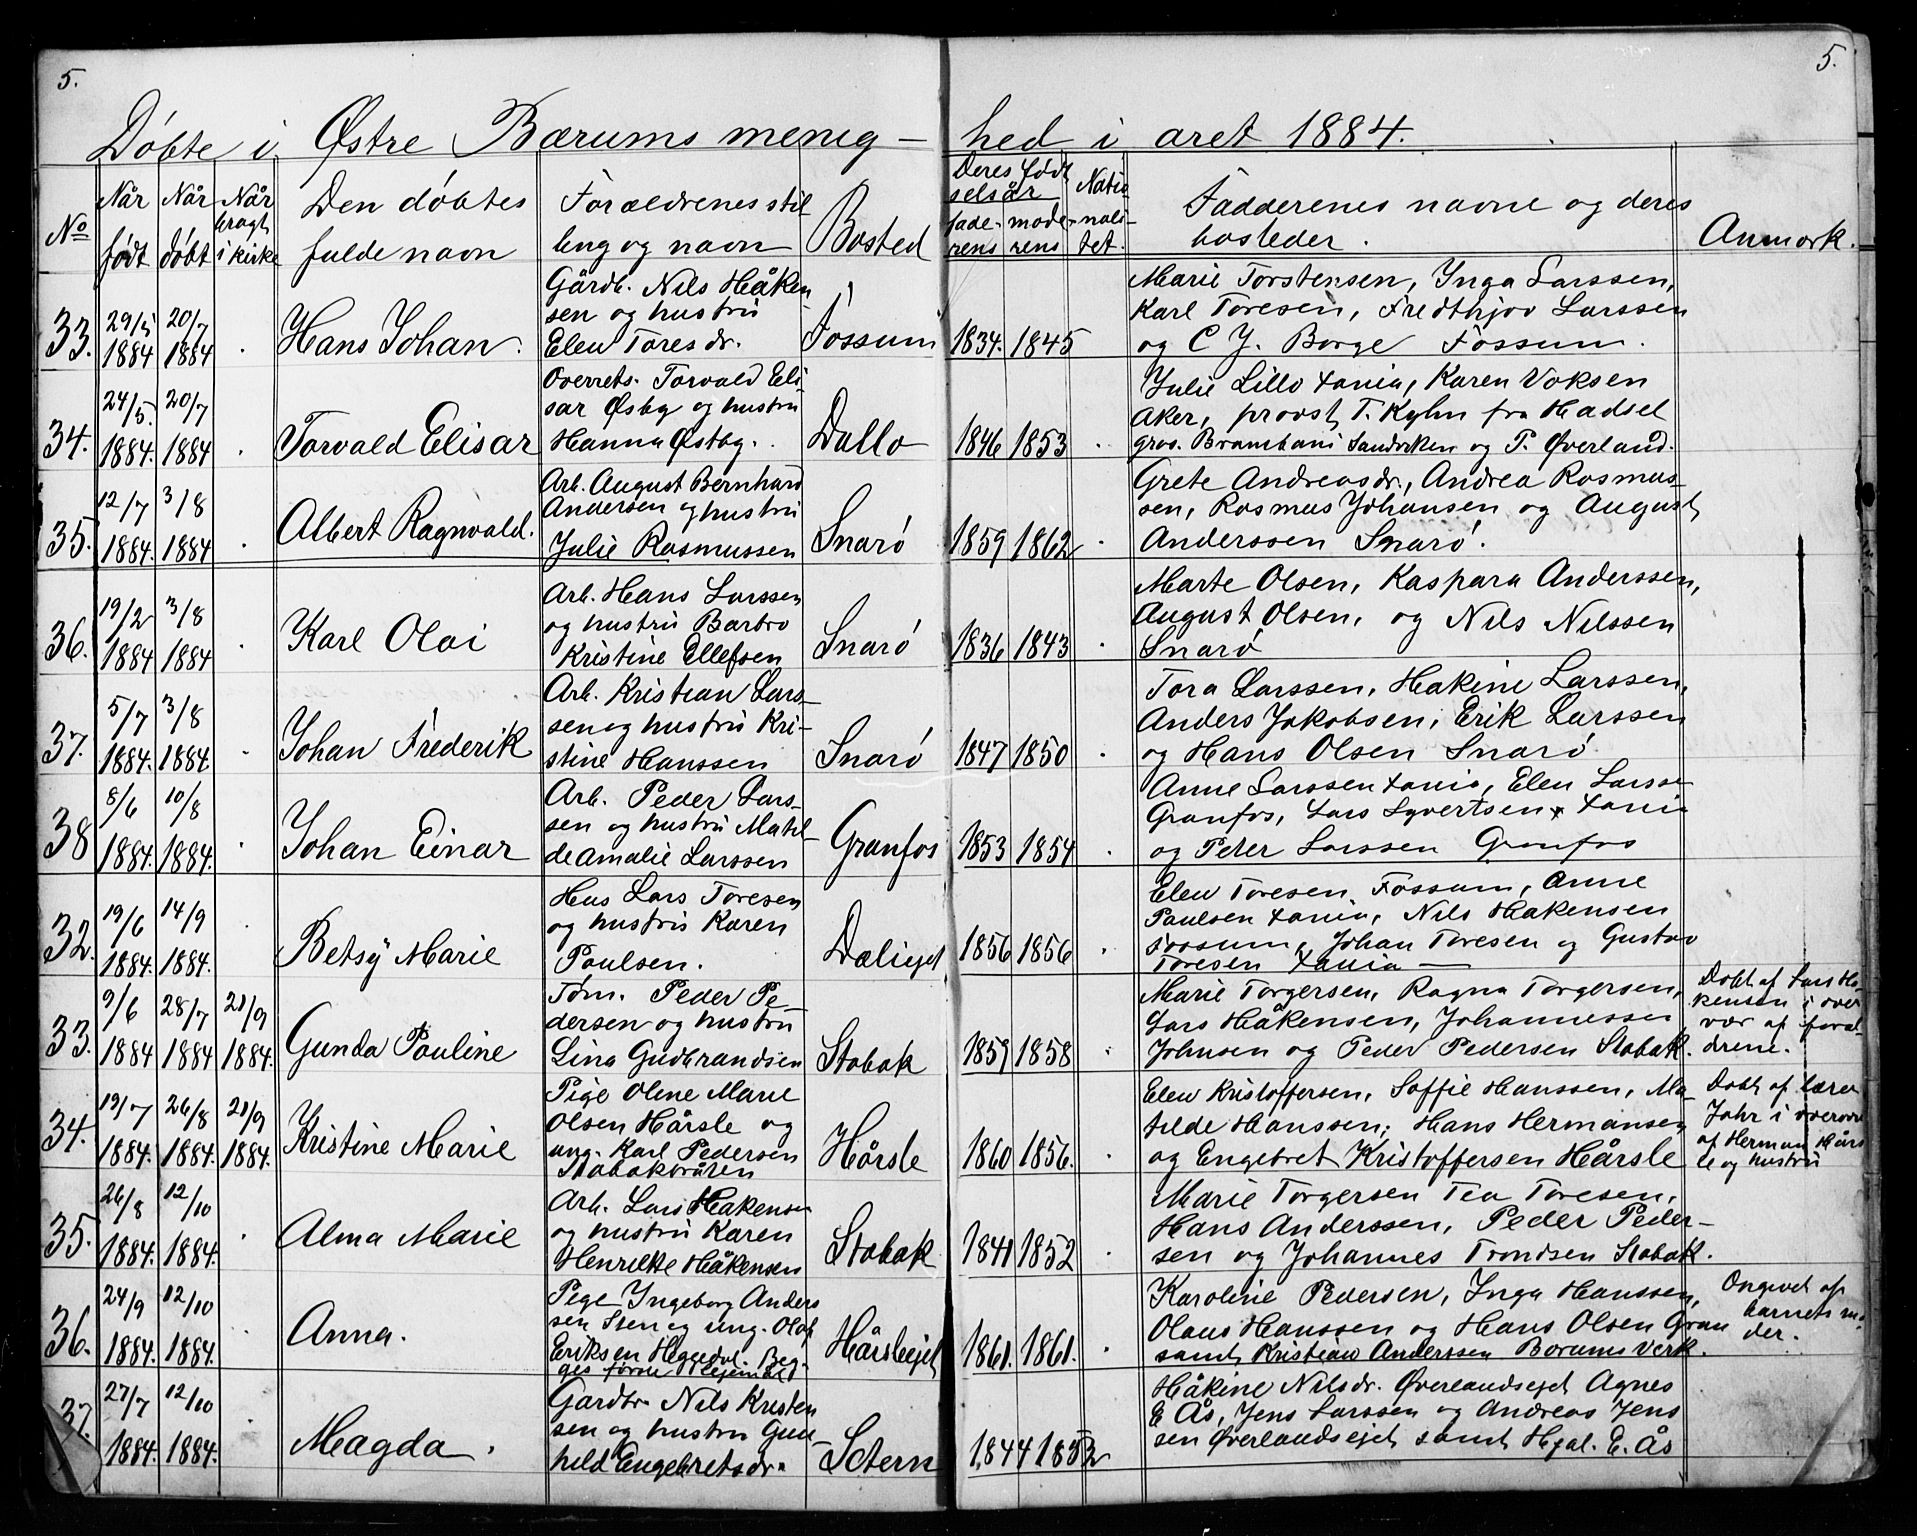 5.
5.
Døbte i Østre Bærums menig-hed i året 1884.
No
Når født
Når døbt
Når bragt i kirke
Den døbtes fulde navn
Forældrenes stilling og navn
Bosted
Deres fødselsår
faderens
moderens
Nationalitet.
Fadderenes navne og deres bosteder.
Anmærk.
33.
29/5 1884
20/7 1884
Hans Johan.
Gårdb. Nils Håken
sen og hustru
Elen Toresdr.
Fossum
1834. 1845
Marie Torstensen, Inga Larssen,
Karl Toresen, Fredthjov Larssen
og C J. Borge Fossum.
34.
24/5 1884.
20/7 1884
Torvald Elisar
Overrets. Torvald Eli
sar Østby og hustru
Hanna Østby.
Dallo
1846 1853
Julie Lillo Xania, Karen Voksen
Aker, provst T. Kyhn fra Hadsel
gros. Brambani Sandviken og P. Øverland.
35.
12/7 1884.
3/8 1884
Albert Ragnvald.
Arb. August Bernhard
Andersen og hustru
Julie Rasmussen
Snarø
1859 1862
Grete Andreasdr., Andrea Rasmus-
sen, Rasmus Johansen og August
Anderssen Snarø.
36.
19/2 1884
3/8 1884
Karl Olai
Arb. Hans Larssen
og hustru Barbro
Kristine Ellefsen
Snarø
1836 1843
Marte Olsen, Kaspara Anderssen,
August Olsen, og Nils Nilssen
Snarø
37.
5/7 1884.
3/8 1884.
Johan Frederik
Arb. Kristian Lars-
sen og hustru Kri-
stine Hanssen
Snarø
1847 1850
Tora Larssen, Håkine Larssen,
Anders Jakobsen, Erik Larssen
og Hans Olsen Snarø
38
8/6 1884.
10/8 1884.
Johan Einar
Arb. Peder Lars-
sen og hustru Matil-
de Amalie Larssen
Granfos
1853 1854
Anne Larssen Xania, Elen Larsse
Granfos, Lars Syvertsen Xania
og Peter Larssen Granfos
32.
19/6 1884.
14/9 1884.
Betsy Marie
Hus Lars Toresen
og hustru Karen
Paulsen.
Daliejet
1856 1856
Elen Toresen Fossum, Anne
Paulsen Xania, Nils Håkensen
Fossum, Johan Toresen og Gustav
Toresen Xania
33.
9/6 1884
28/7 1884
21/9 1884.
Gunda Pauline
Tøm. Peder Pe-
dersen og hustru
Lina Gudbrandsen
Stabæk
1859 1858
Marie Torgersen, Ragna Torgersen,
Lars Håkensen, Johannesse
Johnsen og Peder Pedersen Stabæk.
Døbt af Lars Hå-
kensen i over
vær af foræl-
drene.
34.
19/7 1884.
26/8 1884.
21/9 1884.
Kristine Marie
Pige Oline Marie
Olsen Hårsle og
ung. Karl Pedersen
Hårsle
1860 1856.
Elen Kristoffersen, Soffie Hanssen, Ma-
tilde Hanssen, Hans Hermansen
og Engebret Kristoffersen Hårsle
Døbt af lærer
Jahr i overvær
af Herman Hårs
le og hustru
35.
26/8 1884.
12/10 1884.
Alma Marie
Arb. Lars Håkensen
og hustru Karen
Henrikke Håkensen
Stabæk
1841 1852
Marie Torgersen Tea Toresen,
Hans Anderssen, Peder Peder-
sen og Johannes Trondsen Stabæk.
36.
24/9 1884.
12/10 1884.
Anna.
Pige Ingeborg Anders
sen Sten og ung. Olof
Eriksen Heggedal. Beg-
ges første lejermål
Hårslejet
1861. 1861.
Karoline Pedersen, Inga Hanssen,
Olaus Hanssen og Hans Olsen Gran
samt Kristian Anderssen Bærums Verk.
Opgivet af
barnets mo-
der.
37.
27/7 1884.
12/10 1884.
Magda.
Gårdbr Nils Kristen
sen og hustru Gun
hild Engebretsdr.
Sætern
1844 1852
Håkine Nilsdr. Øverlandsejet Agnes
E Ås, Jens Larssen og Andreas Jens
sen Øverlandsejet samt Hjal. E. Ås